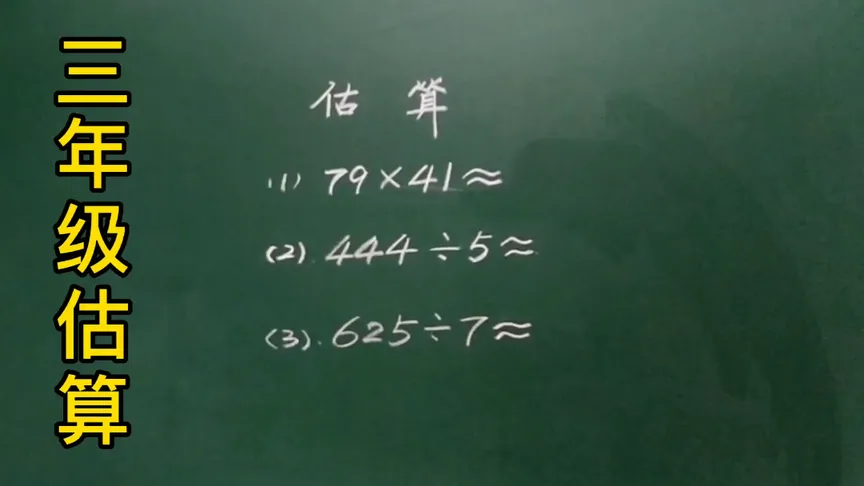 三年级估算
估算
(1) 79×41≈
(2). 444÷5≈
(3). 625÷7≈